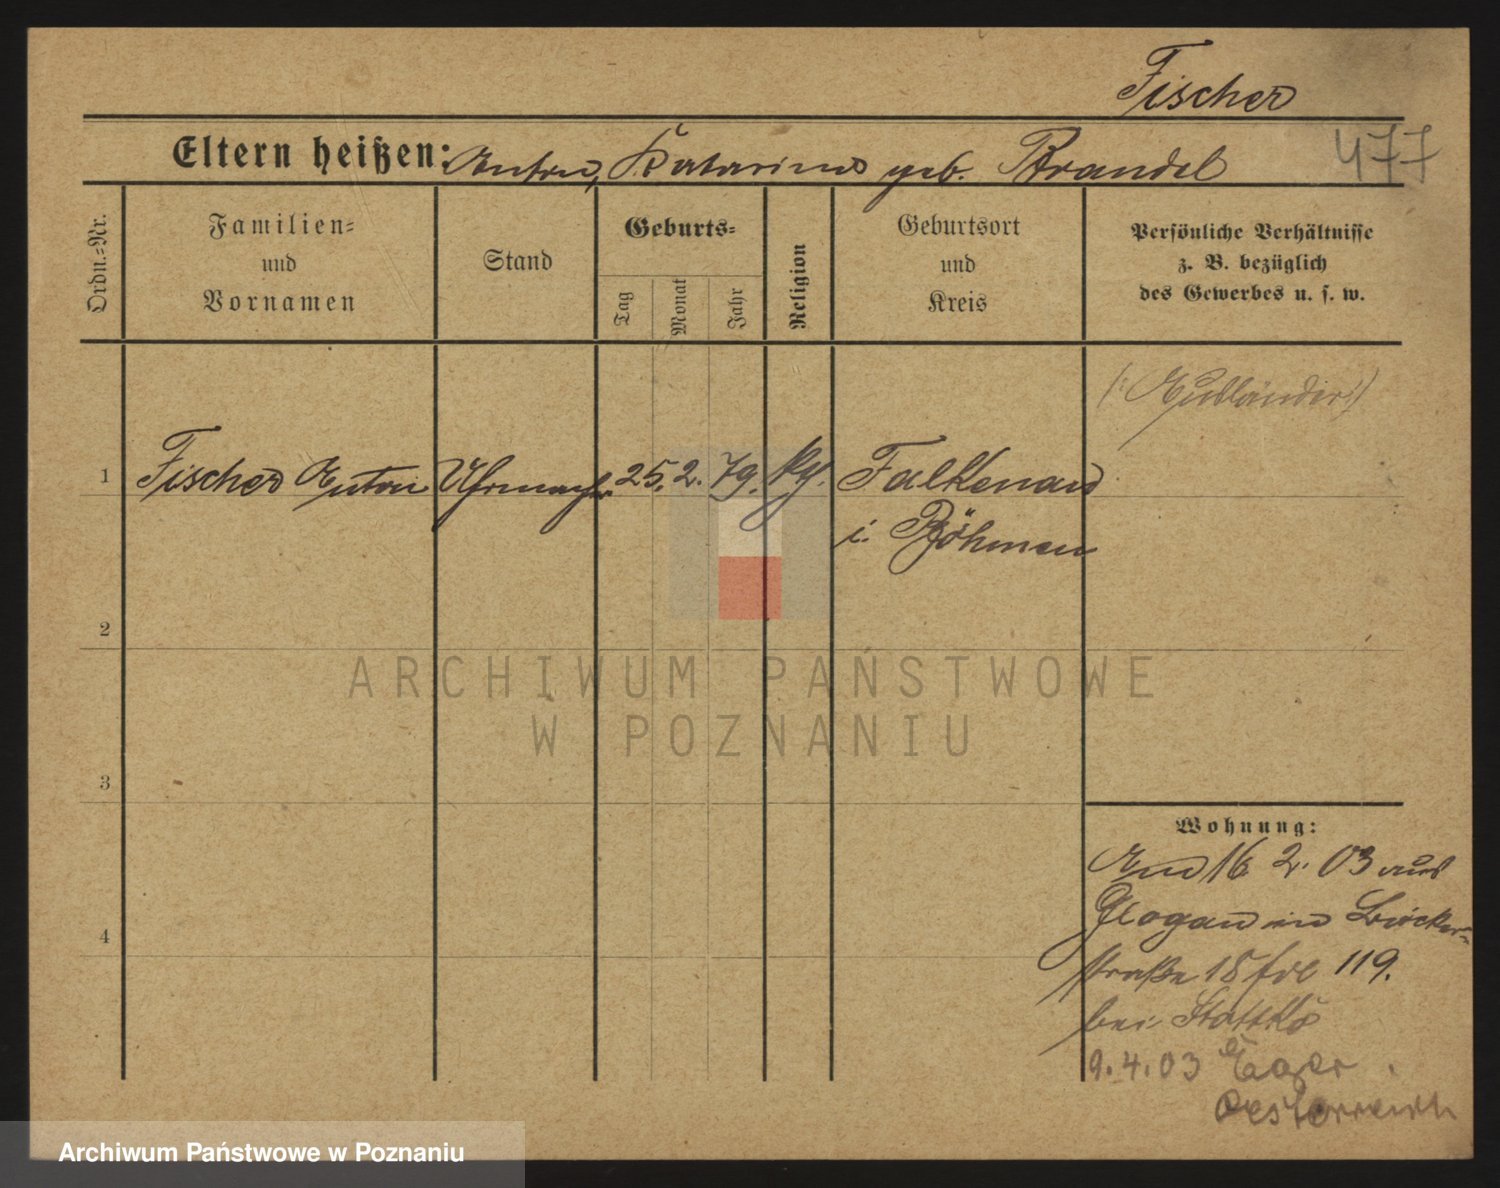 Fischer
Eltern heißen: Anton, Katarina geb. Brandel
477
Ordn.=Nr.
Familien=
und
Vornamen
Stand
Geburts=
Tag
Monat
Jahr
Religion
Geburtsort
und
Kreis
Persönliche Verhältnisse
z. B. bezüglich
des Gewerbes u. s. w.
(: Ausländer :)
1 Fischer Anton Uhrmacher 25. 2. 79. kth. Falkenau
i. Böhmen
2
3
4
Wohnung:
Am 16 2. 03 aus
Glogau in Bäcker=
straße 18 119.
bei
9.4.03 Eger
Oesterreich
ARCHIWUM PAŃSTWOWE
W POZNANIU
Archiwum Państwowe w Poznaniu